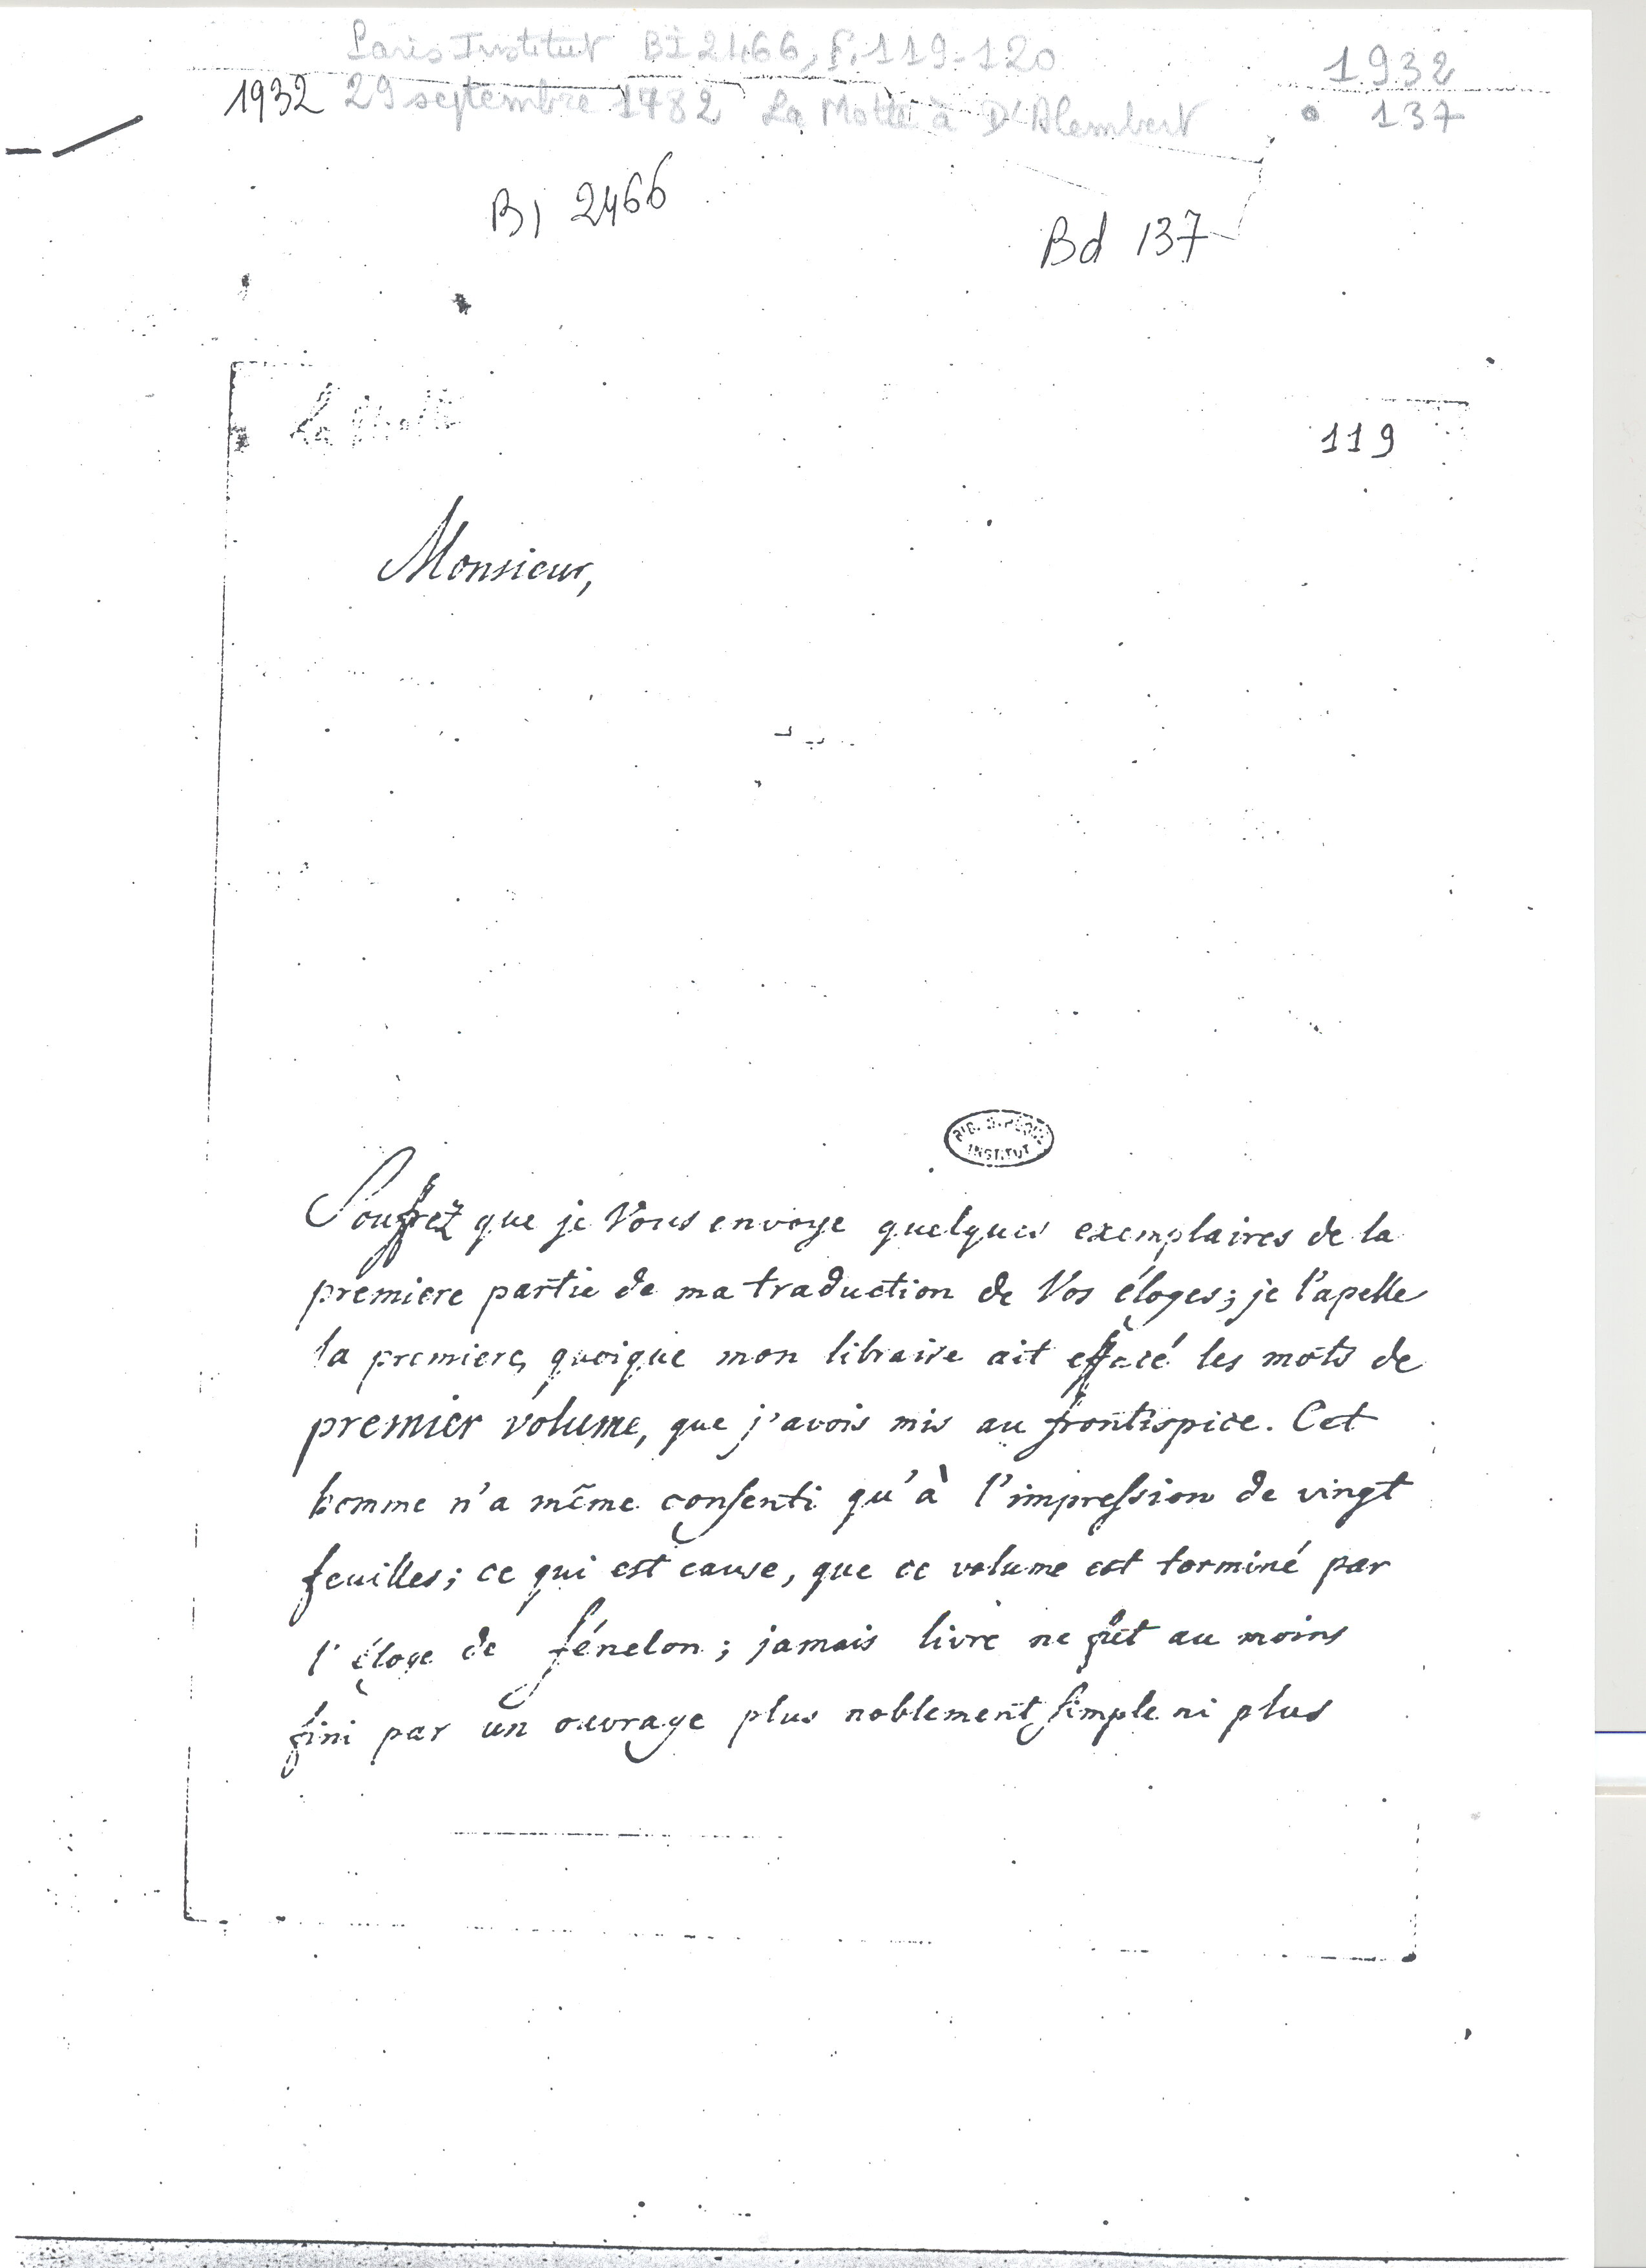 Paris Institut BI 2466, f. 119-120
1932
1932 29 septembre 1782 La Motte à D'Alembert
137
Bi 2466
Bd 137
La Motte
119
Monsieur,
INSTITUT
Souffrez que je Vous envoye quelques exemplaires de la
premiere partie de ma traduction de Vos éloges; je l'apelle
la premiere, quoique mon libraire ait effacé les mots de
premier volume, que j'avois mis au frontispice. Cet
homme n'a même consenti qu'à l'impression de vingt
feuilles; ce qui est cause, que ce volume est terminé par
l'éloge de fénelon; jamais livre ne fût au moins
fini par un ouvrage plus noblement simple ni plus